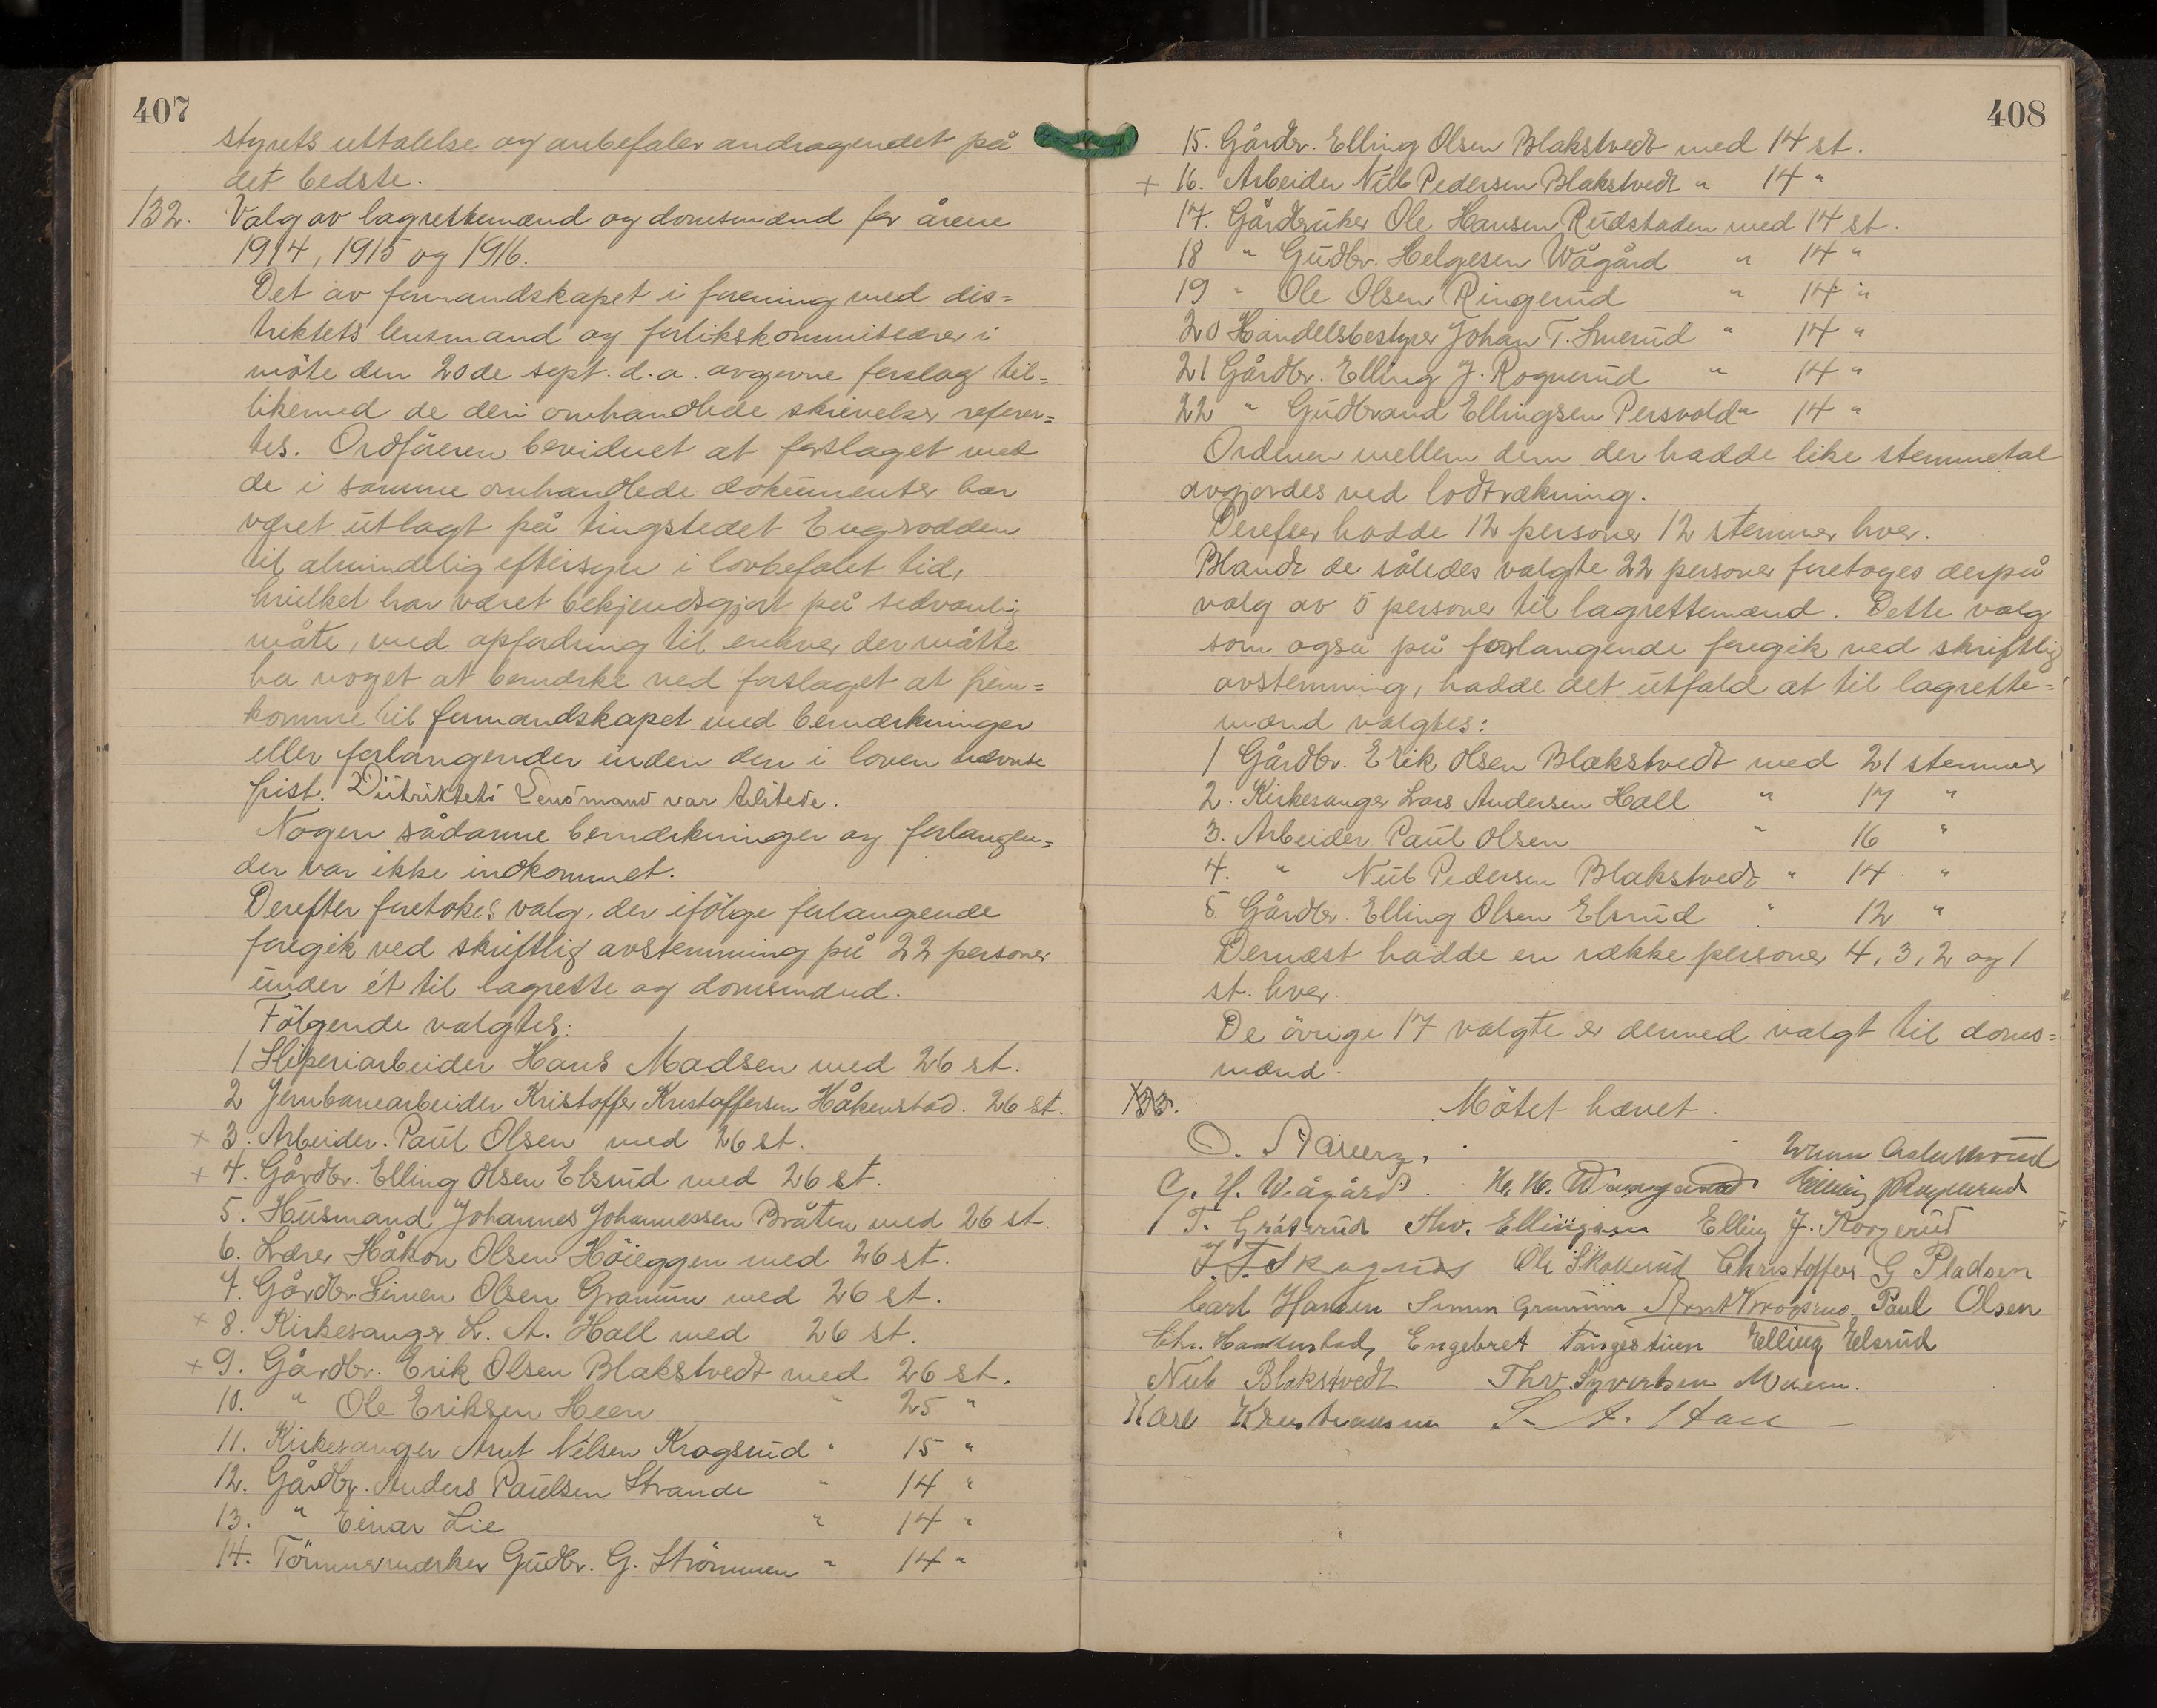 407
styrets uttalelse og anbefaler andragendet på
det bedste.
132. Valg av lagrettemænd og domsmænd for årene
1914, 1915 og 1916.
Det av formandskapet i forening med dis=
triktets lensmand og forlikskommissærer i
møte den 20de sept. d.a. avgivne forslag til=
likemed de deri omhandlede skrivelser referer=
tes. Ordføreren bevidnet at forslaget med
de i samme omhandlede dokumenter har
været utlagt på tingstedet Engsrodden
til almindelig eftersyn i lovbefalet tid,
hvilket har været bekjendtgjort på sedvanlig
måte, med opfordring til enhver der måtte
ha noget at bemærke ved forslaget at frem=
komme til formandskapet med bemærkninger
eller forlangender inden den i loven nævnte
frist. Distriktets Lensmand var tilstede.
Nogen sådanne bemærkninger og forlangen=
der var ikke indkommet.
Derefter foretokes valg, der ifölge forlangende
foregik ved skriftlig avstemming på 22 personer
under ét til lagrette og domsmænd.
Fölgende valgtes:
1 Sliperiarbeider Hans Madsen med 26 st.
2 Jernbanearbeider Kristoffer Kristoffersen Håkenstad. 26 st.
+ 3. Arbeider. Paul Olsen med 26 st.
+ 4. Gårdbr. Elling Olsen Elsrud med 26 st.
5. Husmand Johannes Johannessen Bråten med 26 st.
6. Lærer Håkon Olsen Höieggen med 26 st.
7. Gårdbr Simen Olsen Granum med 26 st.
+ 8. Kirkesanger L. A. Hall med 26 st.
+ 9. Gårdbr. Erik Olsen Blakstvedt med 26 st.
10. " Ole Eriksen Heen " 25 "
11. Kirkesanger Arnt Nilsen Krogsrud " 15 "
12. Gårdbr. Anders Paulsen Strande " 14 "
13. " Einar Lie " 14 "
14. Tömmermærker Gudbr. G. Strömmen " 14 "
408
15. Gårdbr. Elling Olsen Blakstvedt med 14 st.
+ 16. Arbeider Nub Pedersen Blakstvedt " 14 "
17. Gårdbruker Ole Hansen Rudstaden med 14 st.
18 " Gudbr. Helgesen Wågård " 14 "
19 " Ole Olsen Ringerud " 14 "
20 Handelsbestyrer Johan T. Smerud " 14 "
21 Gårdbr. Elling J. Rognerud " 14 "
22 " Gudbrand Ellingsen Persvold " 14 "
Ordenen mellem dem der hadde like stemmetal
avgjordes ved lodtrækning.
Derefter hadde 12 personer 12 stemmer hver.
Blandt de således valgte 22 personer foretoges derpå
valg av 5 personer til lagrettemænd. Dette valg
som også på forlangende foregik ved skriftlig
avstemning, hadde det utfald at til lagrette=
mænd valgtes:
1 Gårdbr. Erik Olsen Blakstvedt med 21 stemmer
2. Kirkesanger Lars Andersen Hall " 17 "
3. Arbeider Paul Olsen " 16 "
4. " Nub Pedersen Blakstvedt " 14 "
5 Gårdbr. Elling Olsen Elsrud " 12 "
Dernæst hadde en række personer 4, 3, 2 og 1
st. hver.
De övrige 17 valgte er dermed valgt til doms=
mænd.
133. Mötet hævet.
O.
G. H. Wågård. H. H.
T. Gråterud Thv. Ellingsen Elling J.
Ole Christoffer G Pladsen
Carl Hansen Simen Granum Arnt Krogsrud. Paul Olsen
Chr. Haakenstad, Engebret Elling Elsrud
Nub Blakstvedt Thv. Syvertsen Moen.
Karl Kristiansen L. A. Hall